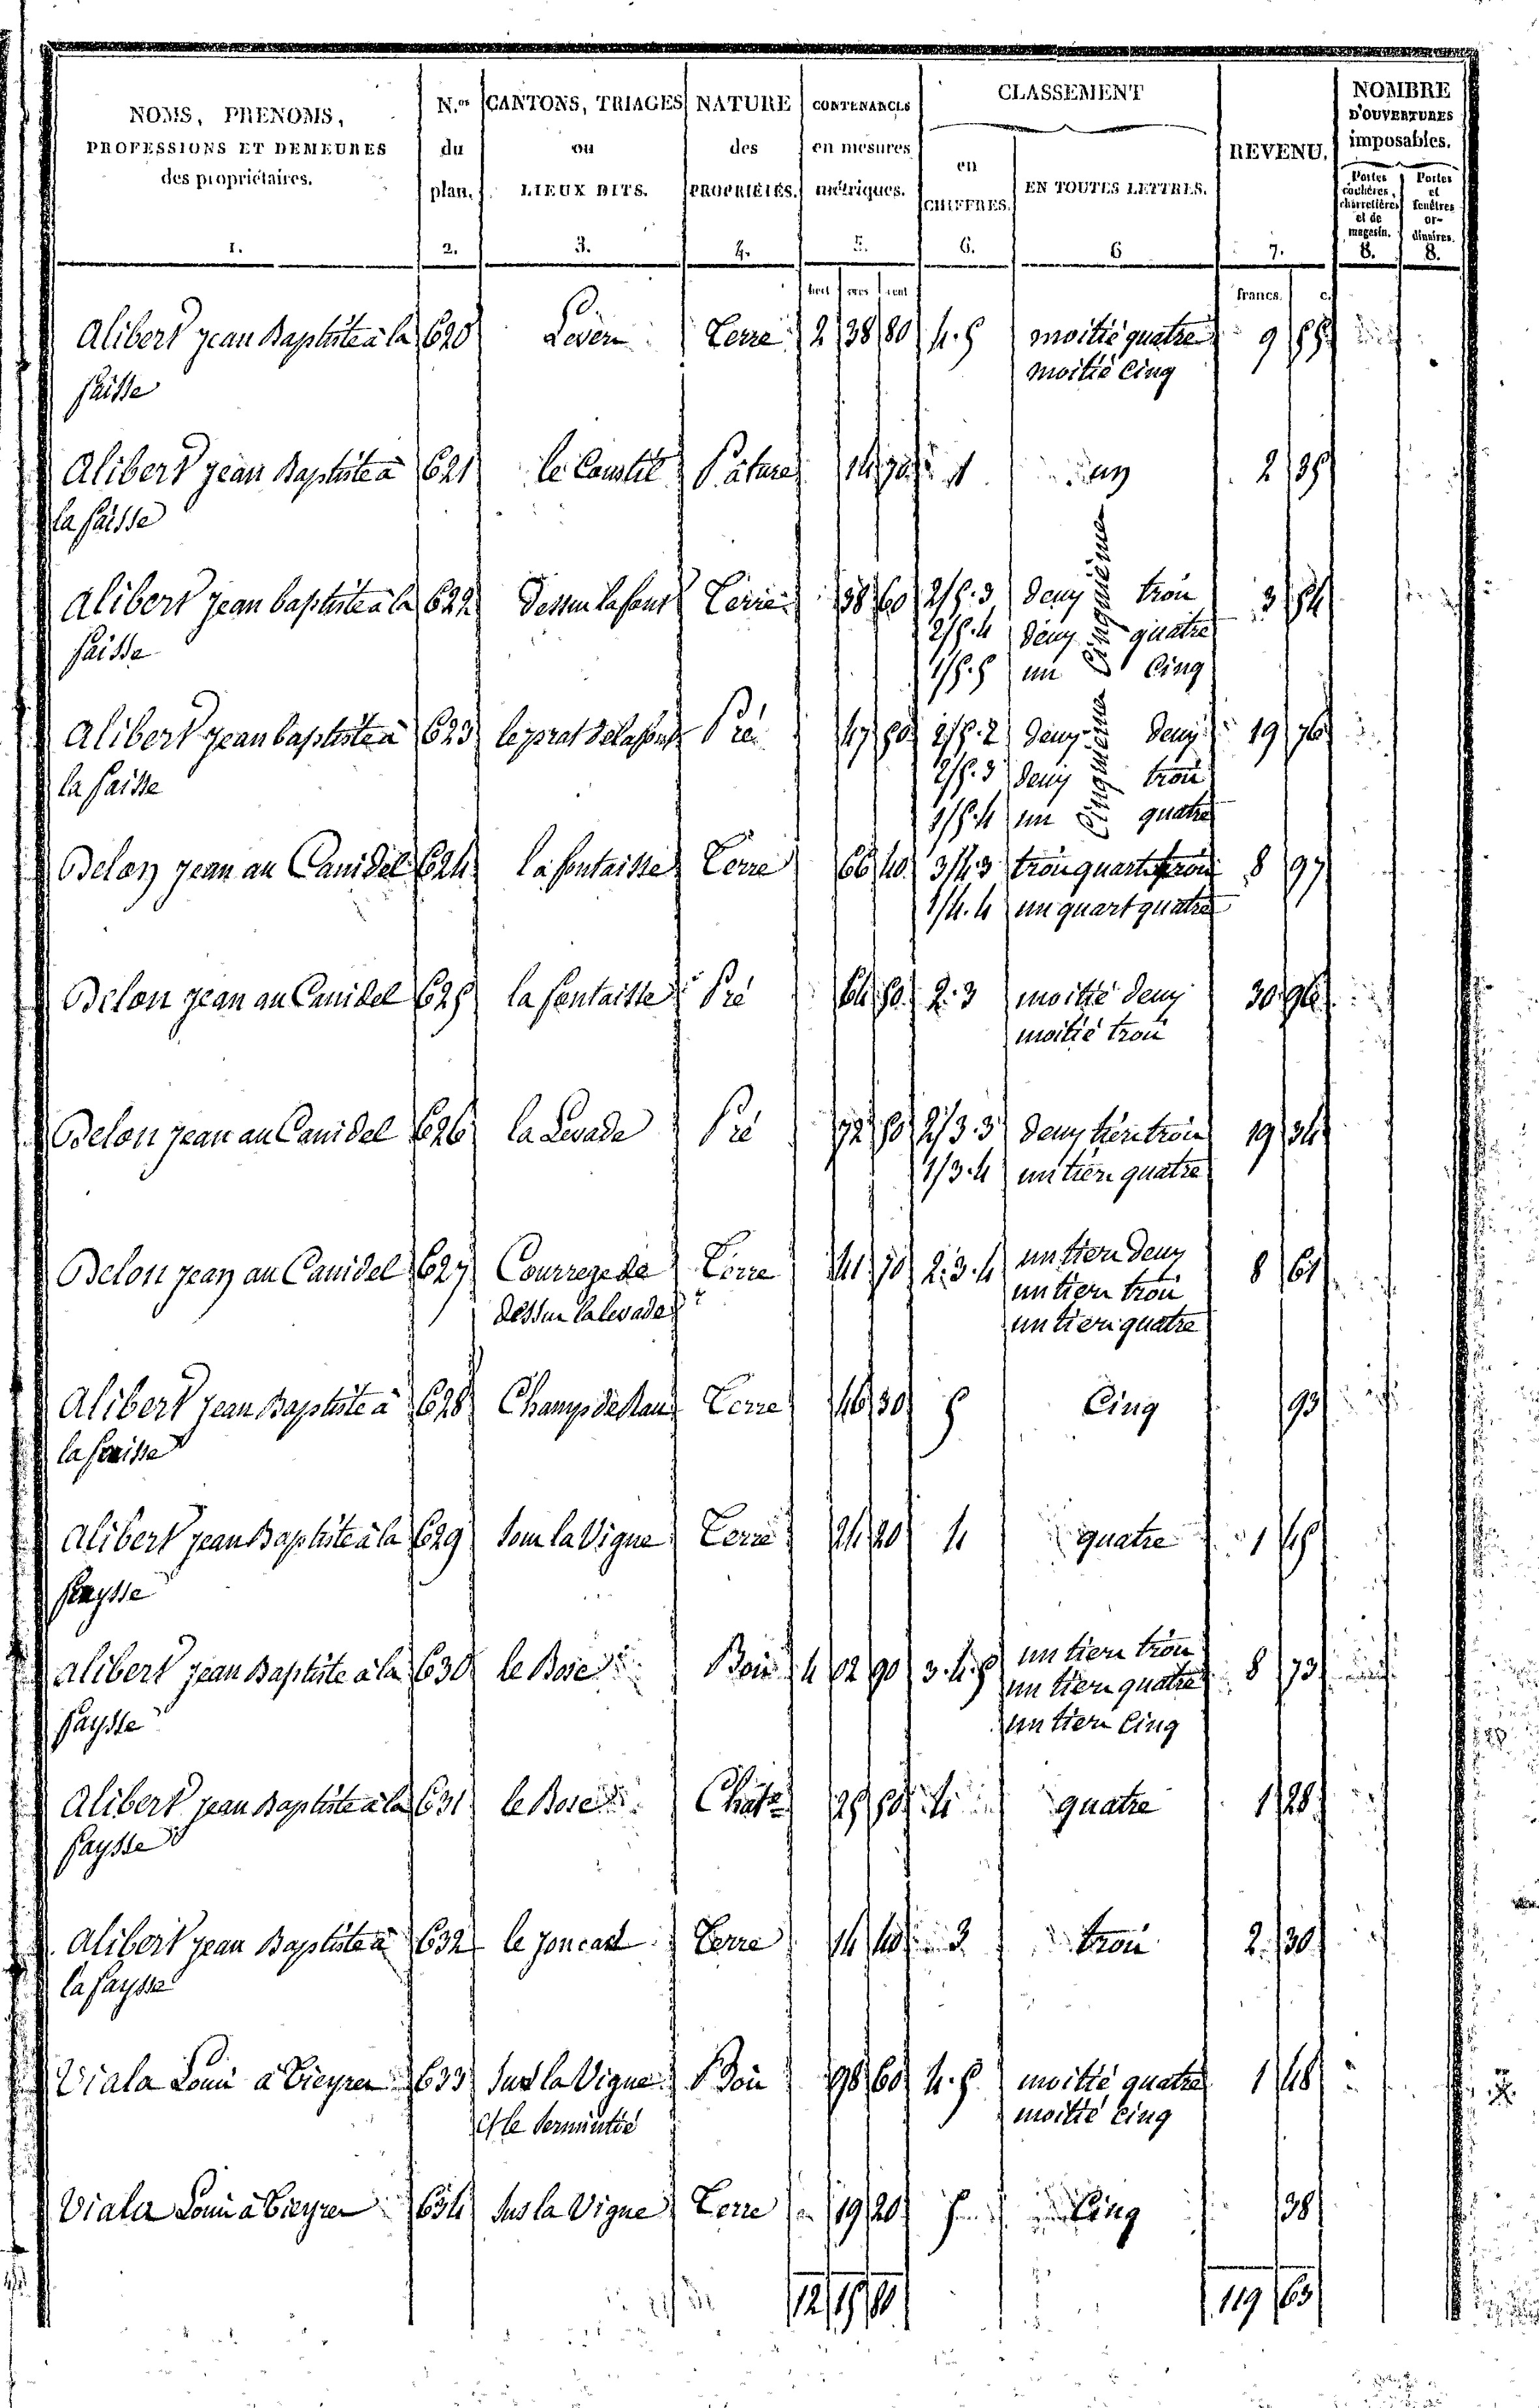 NOMS, PRENOMS, PROFESSIONS ET DEMEURES des propriétaires. 1.
N.os du plan. 2.
CANTONS, TRIAGES ou LIEUX DITS. 3.
NATURE des PROPRIÉTÉS. 4.
CONTENANCES en mesures métriques. 5.
CLASSEMENT
en CHIFFRES. 6.
EN TOUTES LETTRES. 6
REVENU. 7.
NOMBRE D'OUVERTURES imposables.
Portes cochères, charretières et de magasin. 8.
Portes et fenêtres ordinaires. 8.
francs. c.
alibert jean Baptiste à la 620 Terre 2 38 80 4.5 moitié quatre 9 55
faisse moitié Cinq
alibert jean Baptiste à 621 Pature 14 70 1 un 2 35
la faisse
alibert jean baptiste à la 622 Terre 38 60 2/5.3 deux trois 3 54
faisse 2/5.4 deux Cinquieme quatre
1/5.5 un Cinq
alibert jean baptiste à 623 le prat de la font Pré 47 50 2/5.2 deux deux 19 76
la faisse 2/5.3 deux Cinquieme trois
1/5.4 un quatre
Belon jean au Canidel 624 la fontaisse Terre 66 40 3/4.3 trois quarts trois 8 97
1/4.4 un quart quatre
Belon jean au Canidel 625 la fontaisse Pré 64 50 2.3 moitié deux 30 96
moitié trois
Belon jean au Canidel 626 la Levade Pré 72 50 2/3.3 deux tiers trois 19 34
1/3.4 un tiers quatre
Belon jean au Canidel 627 Courrege de Terre 41 70 2.3.4 un tiers deux 8 61
dessus la levade un tiers trois
un tiers quatre
alibert jean Baptiste à 628 Terre 46 30 5 Cinq 93
la faisse
alibert jean Baptiste à la 629 sous la Vigne Terre 24 20 4 quatre 1 45
faysse
alibert jean Baptiste à la 630 le Bosc Bois 4 02 90 3.4.5 un tiers trois 8 73
faysse un tiers quatre
un tiers Cinq
alibert jean Baptiste à la 631 le Bosc 25 50 4 quatre 1 28
faysse
alibert jean Baptiste à 632 le joncas Terre 14 40 3 trois 2 30
la faysse
Viala Louis à Vieyres 633 sus la Vigne Bois 98 60 4.5 moitié quatre 1 48
et le moitié cinq
Viala Louis à Vieyres 634 sus la Vigne Terre 19 20 5 Cinq 38
12 15 80 119 63